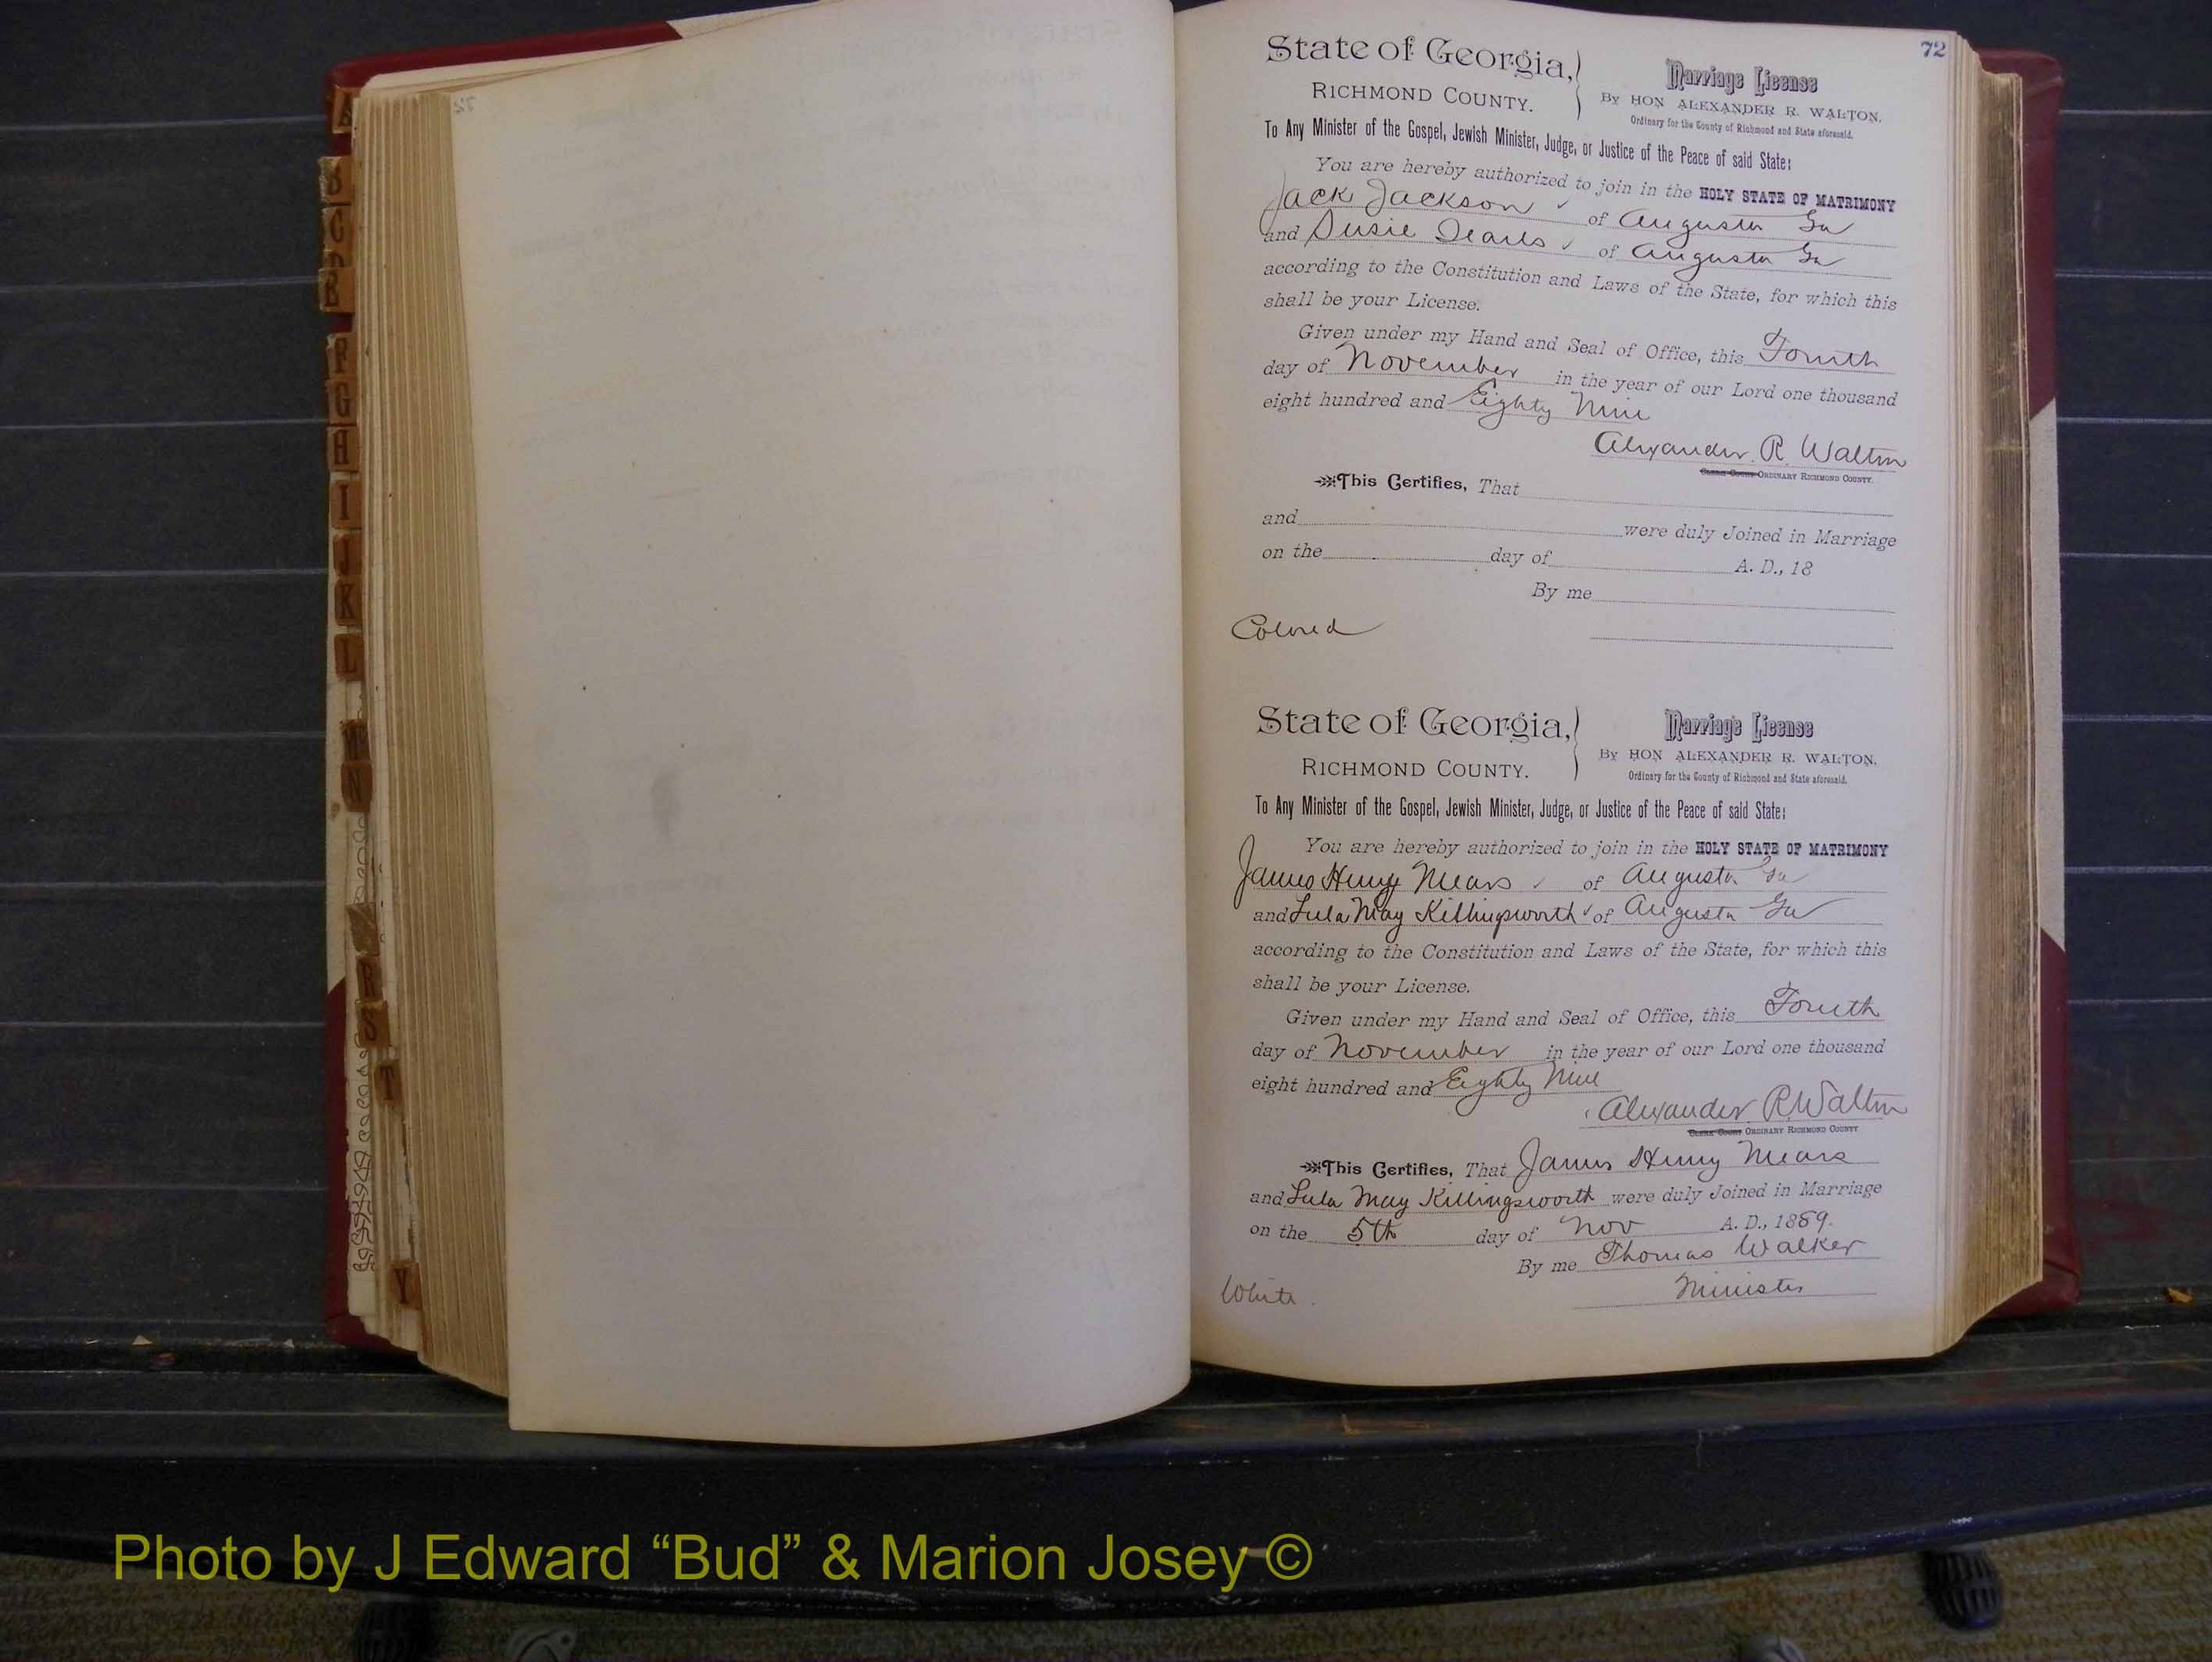 72
State of Georgia,
RICHMOND COUNTY.
Marriage License
By HON ALEXANDER R. WALTON,
Ordinary for the County of Richmond and State aforesaid.
To Any Minister of the Gospel, Jewish Minister, Judge, or Justice of the Peace of said State:
You are hereby authorized to join in the HOLY STATE OF MATRIMONY
Jack Jackson of Augusta Ga
and Susie of Augusta Ga
according to the Constitution and Laws of the State, for which this
shall be your License.
Given under my Hand and Seal of Office, this Fourth
day of November in the year of our Lord one thousand
eight hundred and Eighty Nine
Alexander R. Walton
Clerk Court ORDINARY RICHMOND COUNTY.
This Certifies, That
and were duly Joined in Marriage
on the day of A. D., 18
By me
Colored
State of Georgia,
RICHMOND COUNTY.
Marriage License
By HON ALEXANDER R. WALTON,
Ordinary for the County of Richmond and State aforesaid.
To Any Minister of the Gospel, Jewish Minister, Judge, or Justice of the Peace of said State:
You are hereby authorized to join in the HOLY STATE OF MATRIMONY
James Henry Mears of Augusta Ga
and Lula May Killingsworth of Augusta Ga
according to the Constitution and Laws of the State, for which this
shall be your License.
Given under my Hand and Seal of Office, this Fourth
day of November in the year of our Lord one thousand
eight hundred and Eighty Nine
Alexander R. Walton
Clerk Court ORDINARY RICHMOND COUNTY
This Certifies, That James Henry Mears
and Lula May Killingsworth were duly Joined in Marriage
on the 5th day of Nov A. D., 1889.
By me Thomas Walker
Minister
White
B
C
F
G
H
I
J
K
L
M
N
R
S
T
Y
Photo by J Edward “Bud” & Marion Josey ©